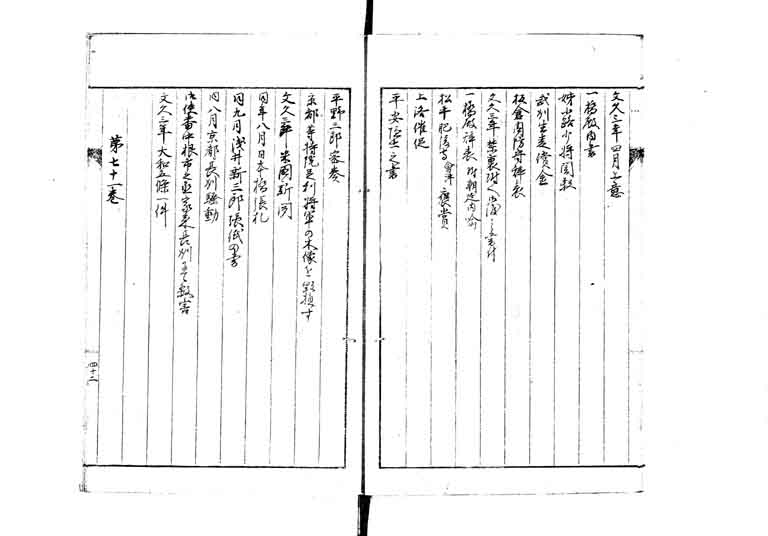 文久三年四月上意
一橋殿内書
姉小路少将闇殺
武州生麦償金
板倉周防守辞表
文久三年禁裏附へ御渡之書付
一橋殿辞表 附朝廷内命
松平肥後守 会津 褒賞
上洛催促
平安隠士之書
平野三郎密奏
京都等持院足利将軍の木像を梟す
文久三年 米国新聞
同年八月日本橋張札
同九月浅井新三郎張紙の書
同八月京都長州騒動
御使番中根市之丞家来長州にて殺害
文久三年大和五條一件
第七十一巻
四十二